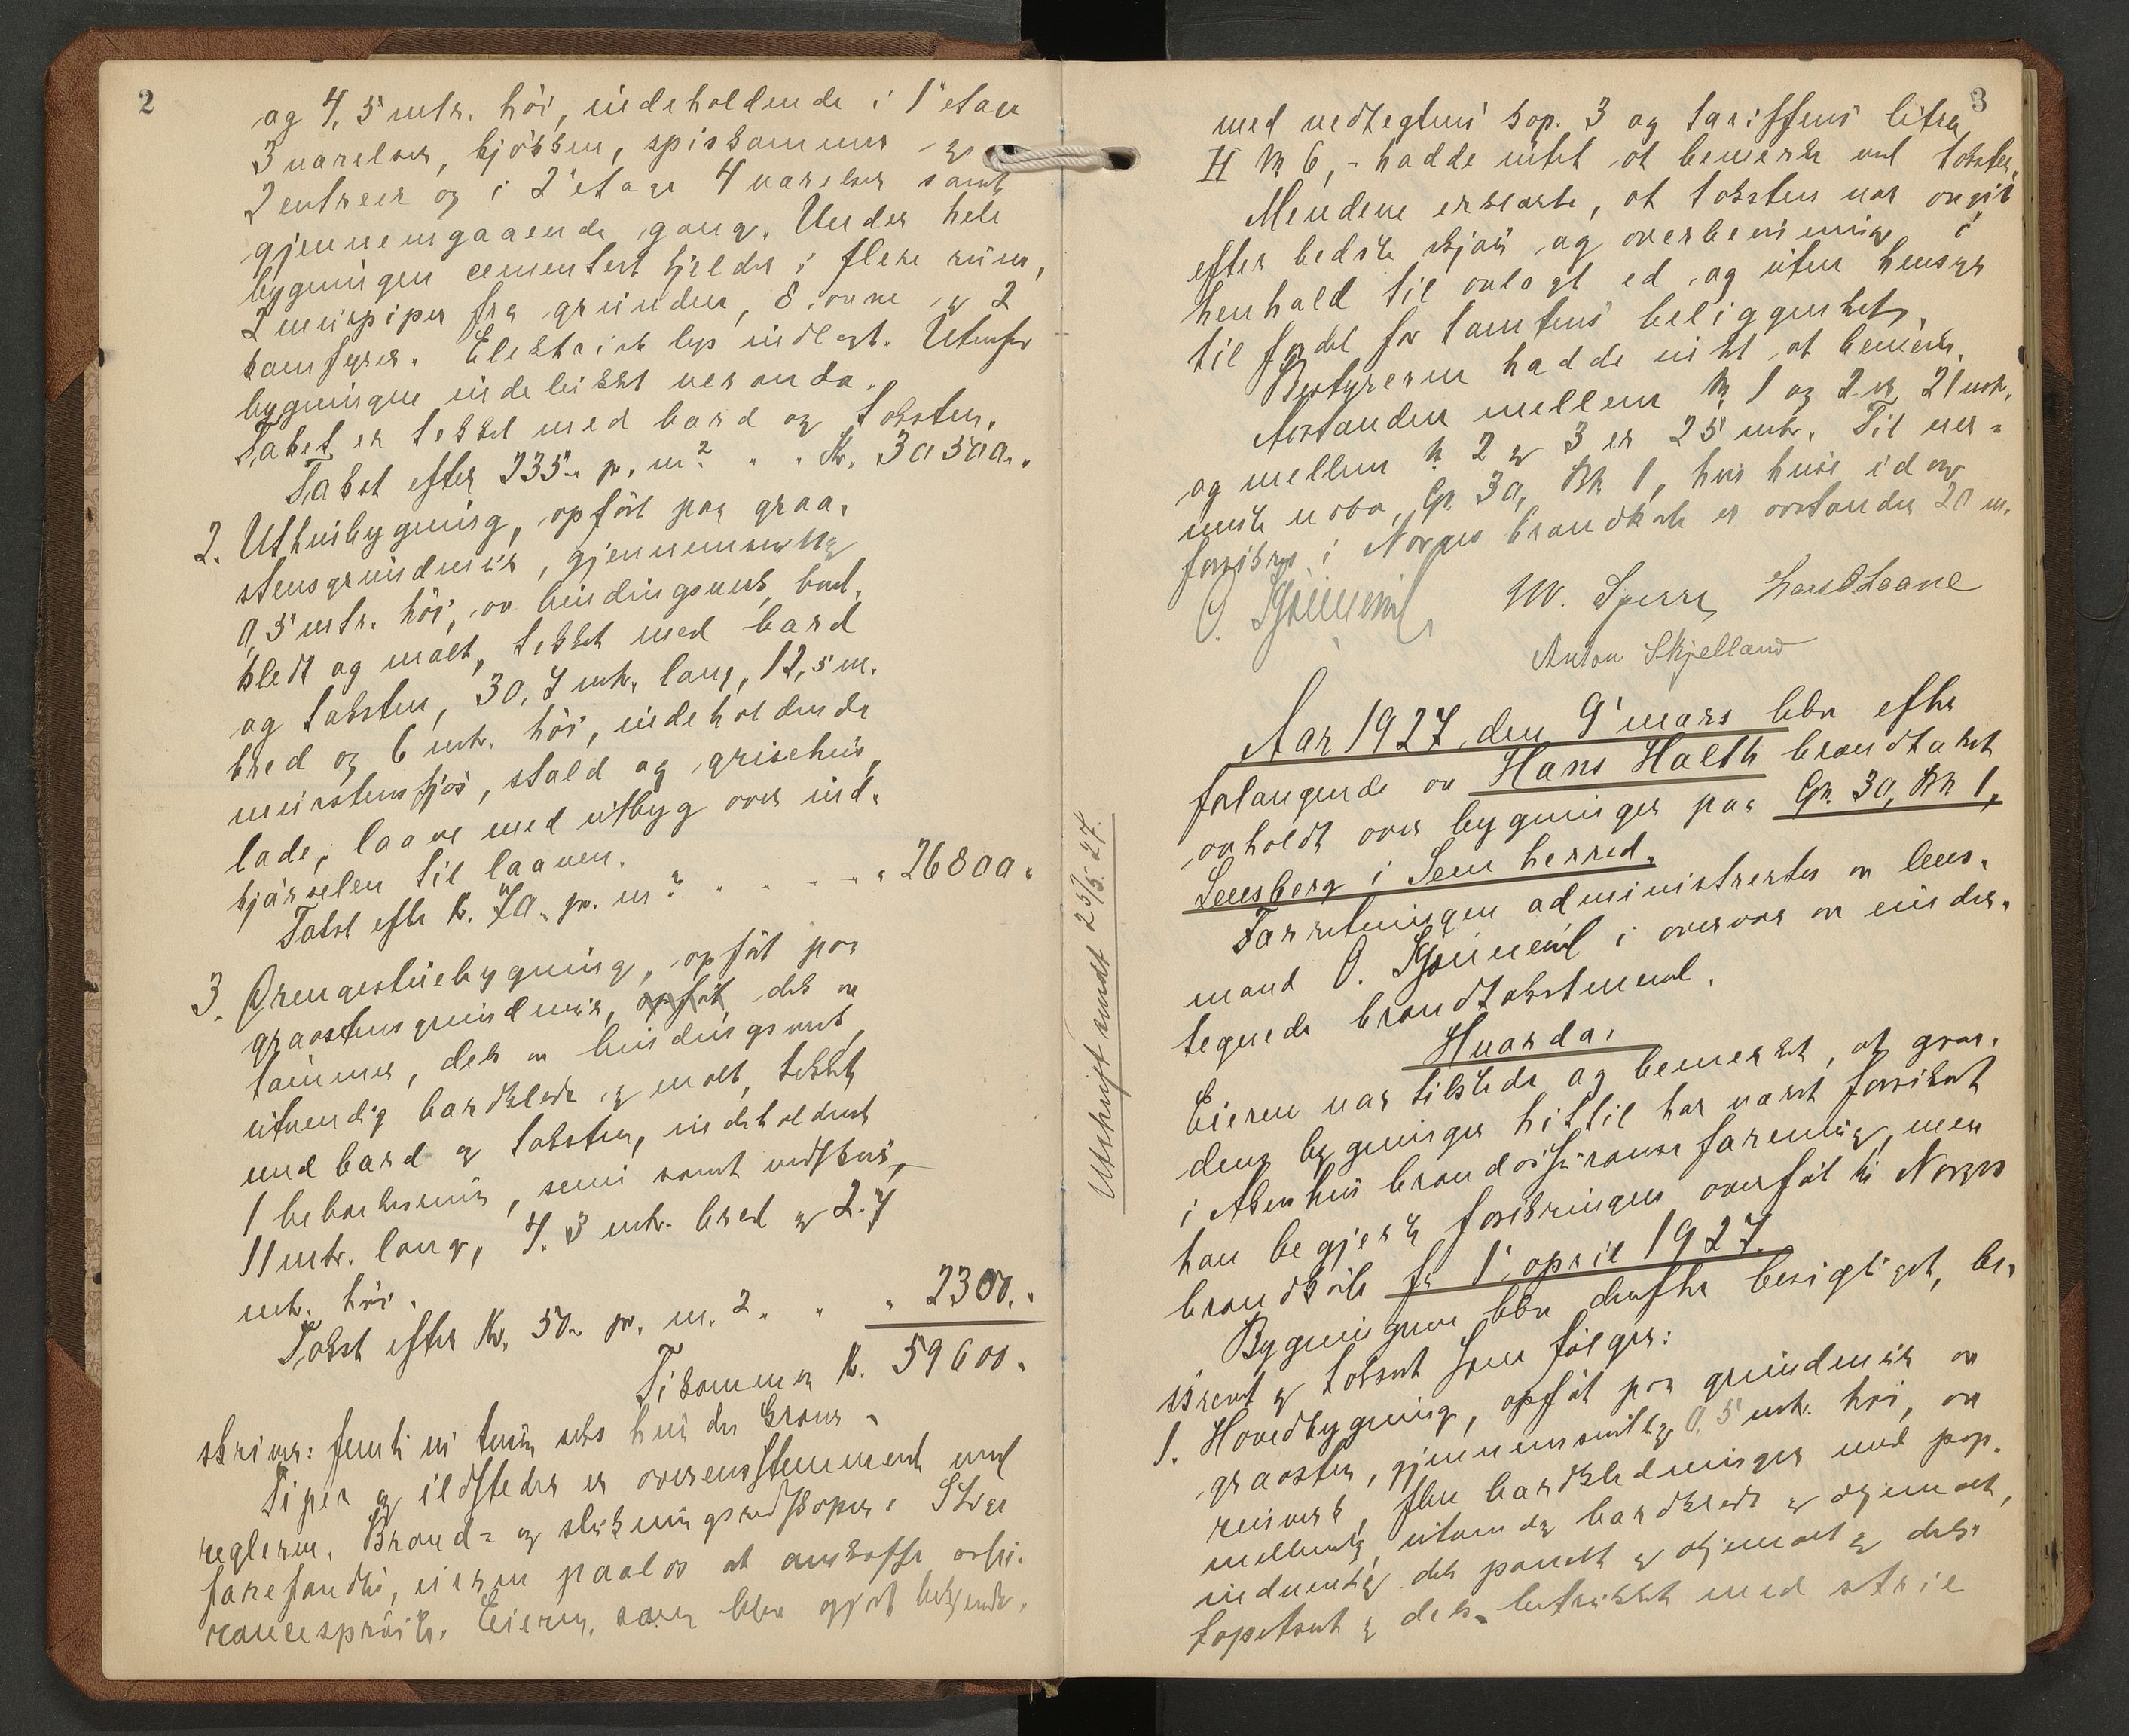 2
og 4,5 mtr. høi, indeholdende i 1' etage
3 værelser, kjøkken, spiskammer og
2 entreer og i 2' etage 4 værelser samt
gjennemgaaende gang. Under hele
bygningen cementert kjelder i flere rum,
2 murpiper fra grunden, 8 ovne og 2
komfyrer. Elektrisk lys indlagt. Utenfor
bygningen indelukket veranda.
Taket er tekket med bord og taksten.
Takst efter 235.- p. m². " " Kr. 30500.-
2. Uthusbygning, opført paa graa-
stensgrundmur, gjennemsnitlig
0,5 mtr. høi, av bindingsverk, bord-
kledt og malt, tekket med bord
og taksten, 30,7 mtr. lang, 12,5 m.
bred og 6 mtr. høi, indeholdende
murstensfjøs, stald og grisehus,
lade, laave med utbyg over ind-
kjørselen til laaven.
Takst efter kr. 70.- pr. m² . . . . . " 26800.-
3. Drengestuebygning, opført paa
graastensgrundmur, opført, dels av
tømmer, dels av bindingsverk,
utvendig bordkledt og malt, tekket
med bord og taksten, indeholdende
1 beboelsesrum, smi samt vedskur,
11 mtr. lang, 4.3 mtr. bred og 2.7
mtr. høi.
Takst efter Kr. 50.- pr. m.2. " " 2300.-
Tilsammen kr. 59600.-
skriver: femti ni tusen seks hundre kroner.
Piper og ildsteder er overensstemmende med
reglerne. Brand- og slukningsredskaper i
forefandtes, eieren paalos at anskaffe assu-
rancesprøite. Eieren, som blev gjort bekjendt
3
med vedtegtens kap. 3 og tariffens litra
II № 6, - hadde intet at bemerke ved taksten.
Mendene erklærte, at taksten var avgit
efter bedste skjøn og overbevisning i
henhold til avlagt ed og uten hensyn
til fordel for tomtens beliggenhet.
Bestyreren hadde intet at bemerke.
Avstanden mellem № 1 og 2 er 21 mtr.
og mellem № 2 og 3 er 25 mtr. Til ner-
meste nabo, Gr. 30, Br. 1, hvis huse idag
forsikres i Norges brandkasse er avstanden 20 m.
M. Lars O Laane
Anton Skjelland
Aar 1927 den 9' mars blev efter
forlangende av Hans Halth brandtakst
avholdt over bygninger paa Gr. 30, Br. 1,
Lensberg i Sem herred.
Forretningen administrertes av lens-
mand O. i overvær av under-
tegnede brandtakstmend.
Hvorda:
Eieren var tilstede og bemerket, at gaar-
dens bygninger hittil har været forsikret
i brandassuranseforening, men
han begjerte forsikringen overført til Norges
brandkasse fra 1' april 1927.
Bygningene blev derefter besigtiget, be-
skrevet og takseret som følger:
1. Hovedbygning, opført paa grundmur av
graasten, gjennemsnitlig 0,5 mtr. høi, av
reisverk, flere bordkledninger med pap.
mellemlæg, utvendig bordkledt og oljemalt,
indvendig dels panelt og oljemalt og dels
tapetsert og dels betrukket med strie
Utskrift sendt 23/3. 27.